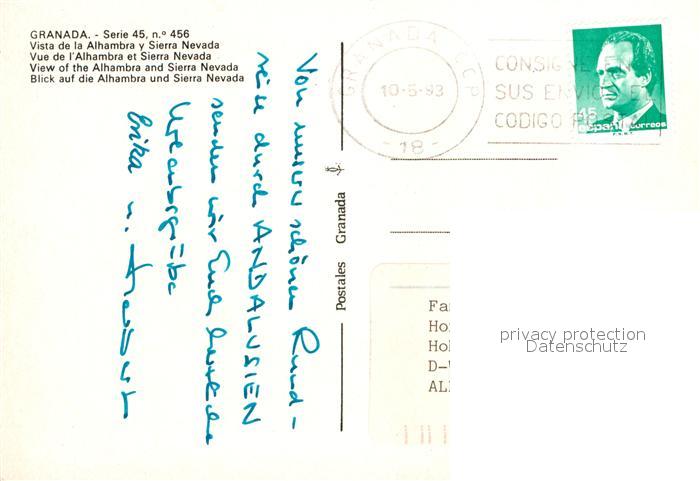 GRANADA. - Serie 45, n.º 456
Vista de la Alhambra y Sierra Nevada
Vue de l'Alhambra et Sierra Nevada
View of the Alhambra and Sierra Nevada
Blick auf die Alhambra und Sierra Nevada
Von unserer schönen Rund-
reise durch ANDALUSIEN
senden wir Euch herzliche
Erika u.
Postales Granada
GRANADA CCP
10-5-93
-18-
CONSIGNE
SUS ENVIO
CODIGO
45
ESPAÑA correos
Fa
Ho
Ho
D-
AL
privacy protection
Datenschutz